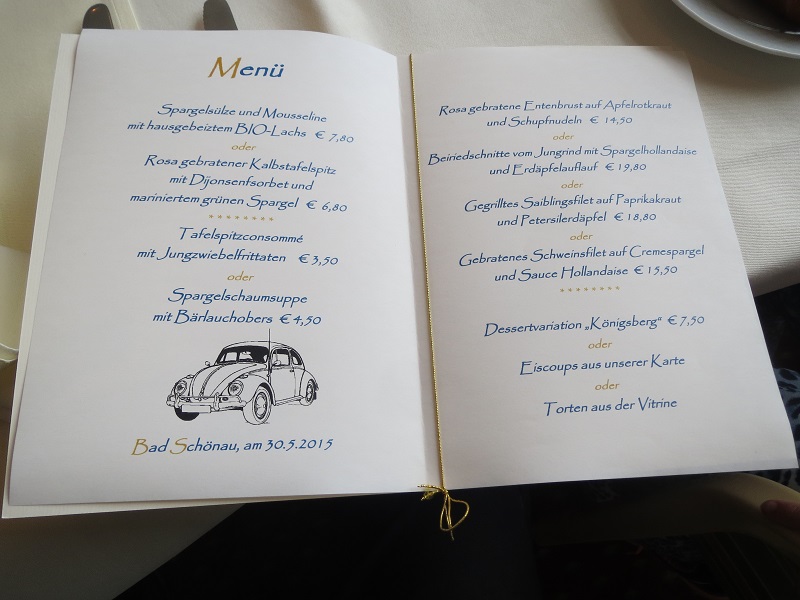 Menü
Spargelsülze und Mousseline
mit hausgebeiztem BIO-Lachs € 7,80
oder
Rosa gebratener Kalbstafelspitz
mit Dijonsenfsorbet und
mariniertem grünen Spargel € 6,80
********
Tafelspitzconsommé
mit Jungzwiebelfrittaten € 3,50
oder
Spargelschaumsuppe
mit Bärlauchobers € 4,50
Bad Schönau, am 30.5.2015
Rosa gebratene Entenbrust auf Apfelrotkraut
und Schupfnudeln € 14,50
oder
Beiriedschnitte vom Jungrind mit Spargelhollandaise
und Erdäpfelauflauf € 19,80
oder
Gegrilltes Saiblingsfilet auf Paprikakraut
und Petersilerdäpfel € 18,80
oder
Gebratenes Schweinsfilet auf Cremespargel
und Sauce Hollandaise € 15,50
********
Dessertvariation „Königsberg“ € 7,50
oder
Eiscoups aus unserer Karte
oder
Torten aus der Vitrine